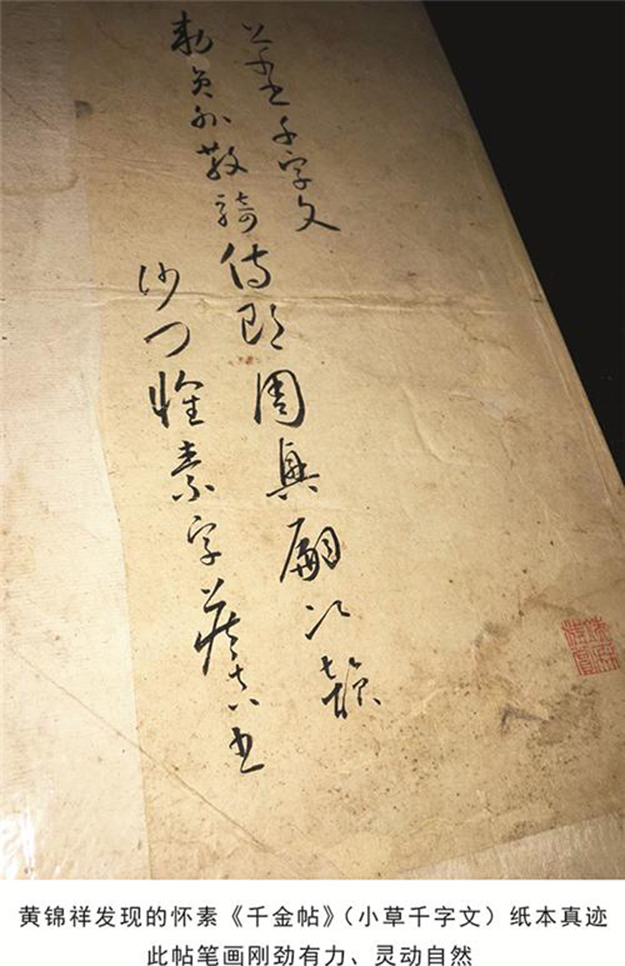 草書千字文
勅員外散騎侍郎周興嗣次韻
沙門懷素字藏真書
黄锦祥发现的怀素《千金帖》（小草千字文）纸本真迹
此帖笔画刚劲有力、灵动自然